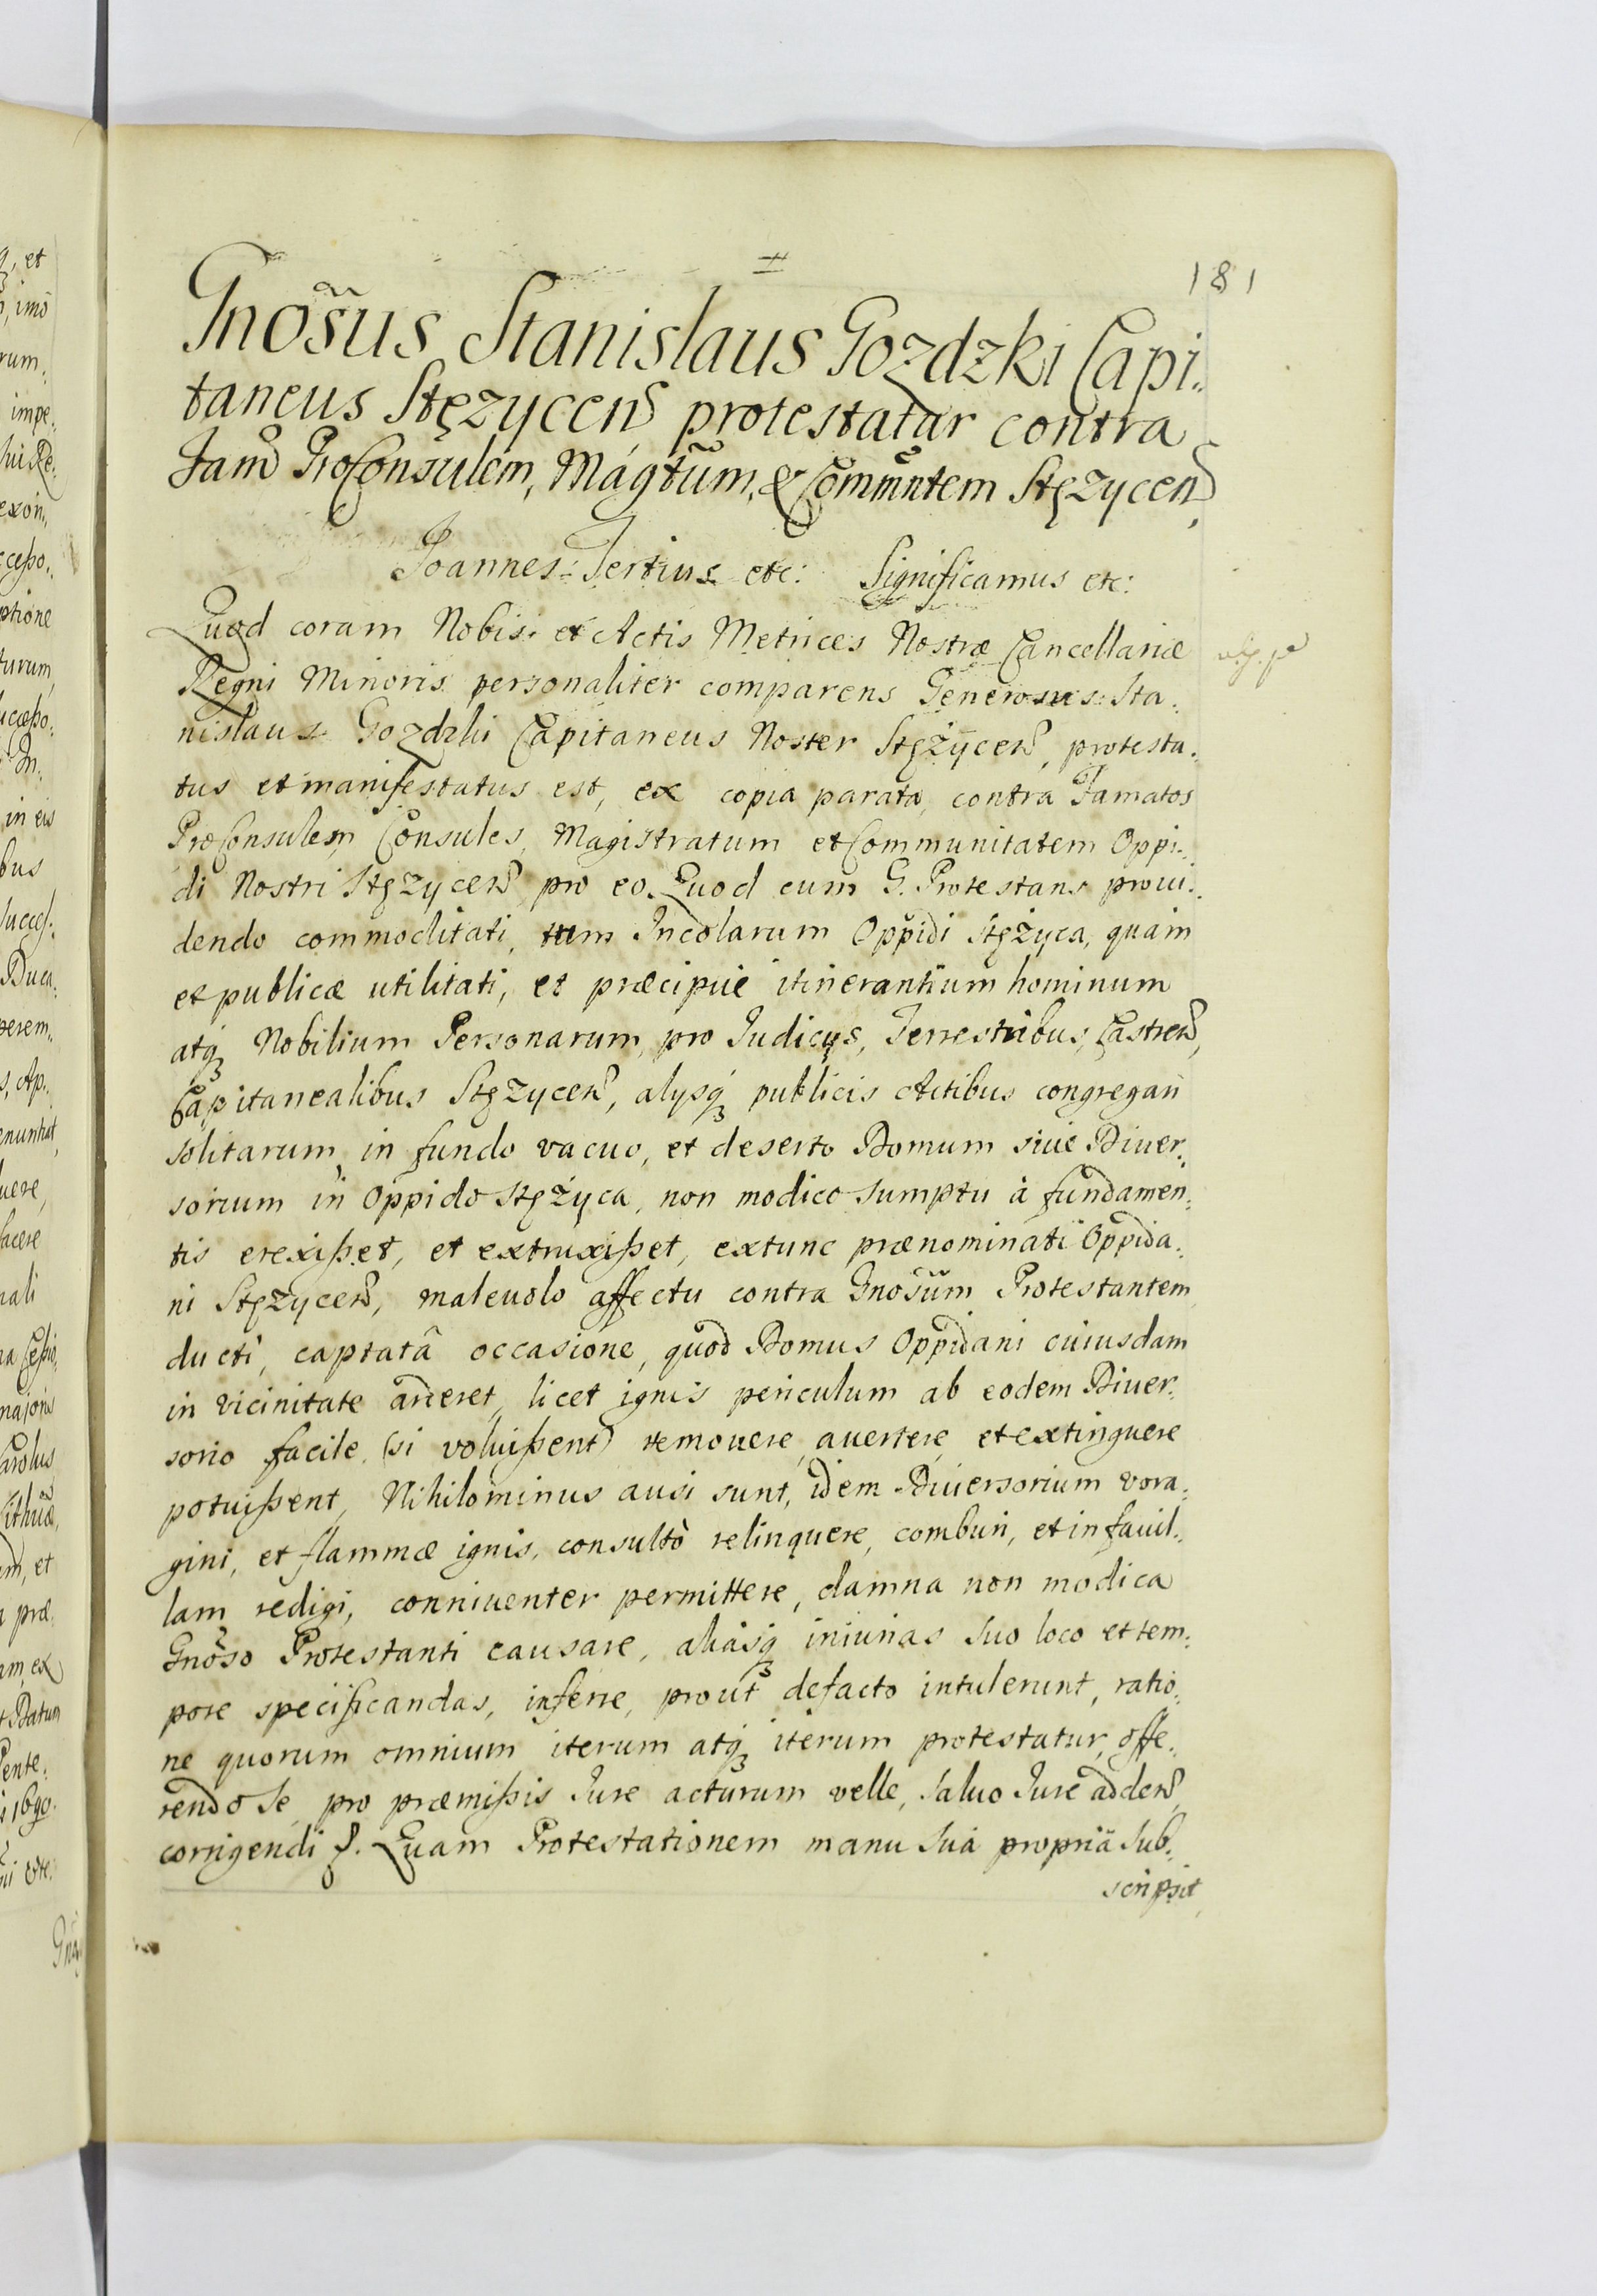 181
Gnosus Stanislaus Gozdzki Capi:
taneus Stęzycen protestatur contra
Fam ProConsulem, Magtum, & Communtem Stęzycen
Joannes Tertius etc: Significamus etc:
Quod coram Nobis et Actis Metrices Nostræ Cancellariæ
Regni Minoris personaliter comparens Generosus Sta:
nislaus Gozdzki Capitaneus Noster Stężycen, protesta:
tus et manifestatus est, ex copia parata, contra Famatos
ProConsulem, Consules, Magistratum et Communitatem Oppi:
di Nostri Stęzycen pro eo. Quod cum G. Protestans proui:
dendo commoditati, tum Incolarum Oppidi Stężyca, quam
et publicæ utilitati, et præcipuè itinerantium hominum
atq Nobilium Personarum, pro Iudicys, Terrestribus, Castren,
Capitanealibus Stęzycen, alysq publicis Actibus congregari
solitarum, in fundo vacuo, et deserto Domum siue Diuer:
sorium in Oppido Stężyca, non modico sumptu à fundamen:
tis erexißet, et extruxißet, extunc prænominati Oppida:
ni Stęzycen, maleuolo affectu contra Gnosum Protestantem
ducti, captatâ occasione, quod Domus Oppidani cuiusdam
in vicinitate arderet, licet ignis periculum ab eodem Diuer:
sorio facile (si voluißent) remouere, auertere, et extinguere
potuißent, Nihilominus ausi sunt, idem Diuersorium vora:
gini, et flammæ ignis, consultò relinquere, comburi, et in fauil:
lam redigi, conniuenter permittere, damna non modica
Gnoso Protestanti causare, aliasq iniurias suo loco et tem:
pore specificandas, inferre, prout defacto intulerunt, ratio:
ne quorum omnium iterum atq iterum protestatur, offe:
rendo se pro præmißis Iure acturum velle, saluo Iure adden,
corrigendi &. Quam Protestationem manu suâ propriâ sub:
scripsit,